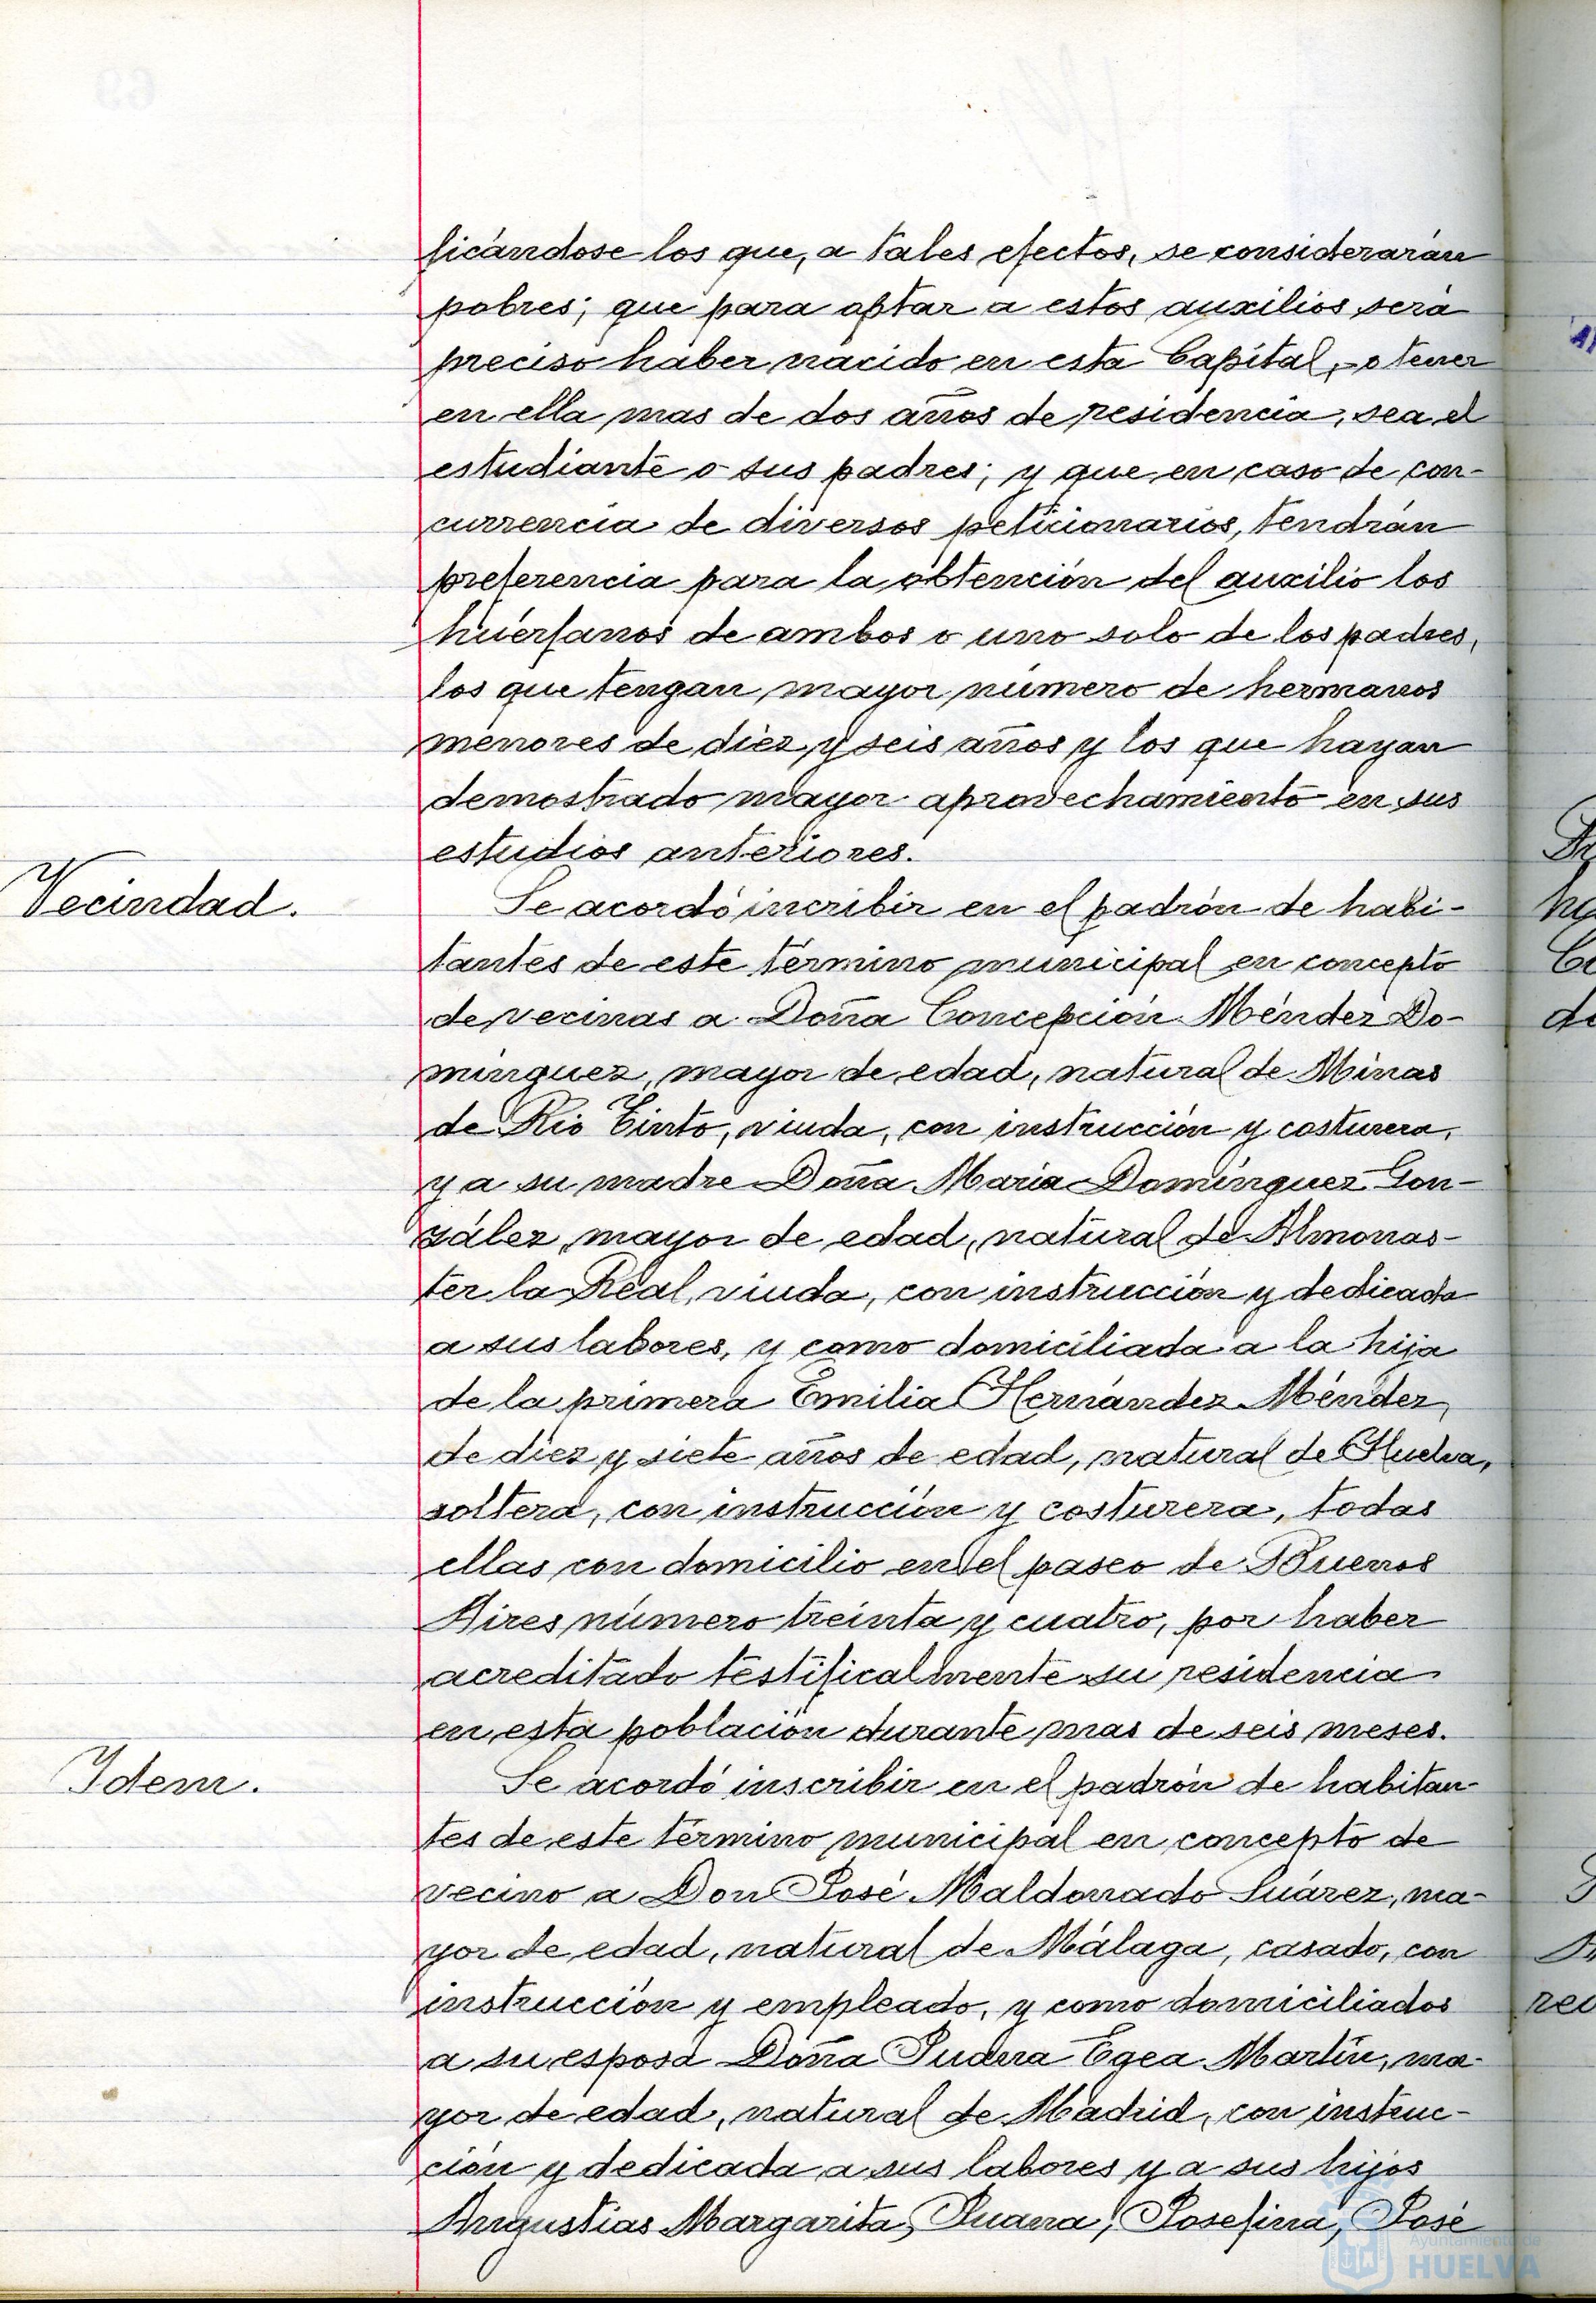 ficándose los que, a tales efectos, se considerarán
pobres; que para optar a estos auxilios será
preciso haber nacido en esta Capital, o tener
en ella mas de dos años de residencia, sea el
estudiante o sus padres; y que en caso de con-
currencia de diversos peticionarios, tendrán
preferencia para la obtención del auxilio los
huérfanos de ambos o uno solo de los padres,
los que tengan mayor número de hermanos
menores de diez y seis años y los que hayan
demostrado mayor aprovechamiento en sus
estudios anteriores.
Vecindad.
Se acordó incribir en el padrón de habi-
tantes de este término municipal en concepto
de vecinas a Doña Concepción Méndez Do-
minguez, mayor de edad, natural de Minas
de Rio Tinto, viuda, con instrucción y costurera,
y a su madre Doña Maria Dominguez Gon-
zález, mayor de edad, natural de Almonas-
ter la Real, viuda, con instrucción y dedicada
a sus labores, y como domiciliada a la hija
de la primera Emilia Hernández Méndez,
de diez y siete años de edad, natural de Huelva,
soltera, con instrucción y costurera, todas
ellas con domicilio en el paseo de Buenos
Aires número treinta y cuatro, por haber
acreditado testificalmente su residencia
en esta población durante mas de seis meses.
Idem.
Se acordó inscribir en el padrón de habitan-
tes de este término municipal en concepto de
vecino a Don José Maldonado Suárez, ma-
yor de edad, natural de Málaga, casado, con
instrucción y empleado, y como domiciliados
a su esposa Doña Juana Egea Martín, ma-
yor de edad, natural de Madrid, con instruc-
ción y dedicada a sus labores y a sus hijos
Angustias Margarita, Juana, Josefina, José
Ayuntamiento de
HUELVA